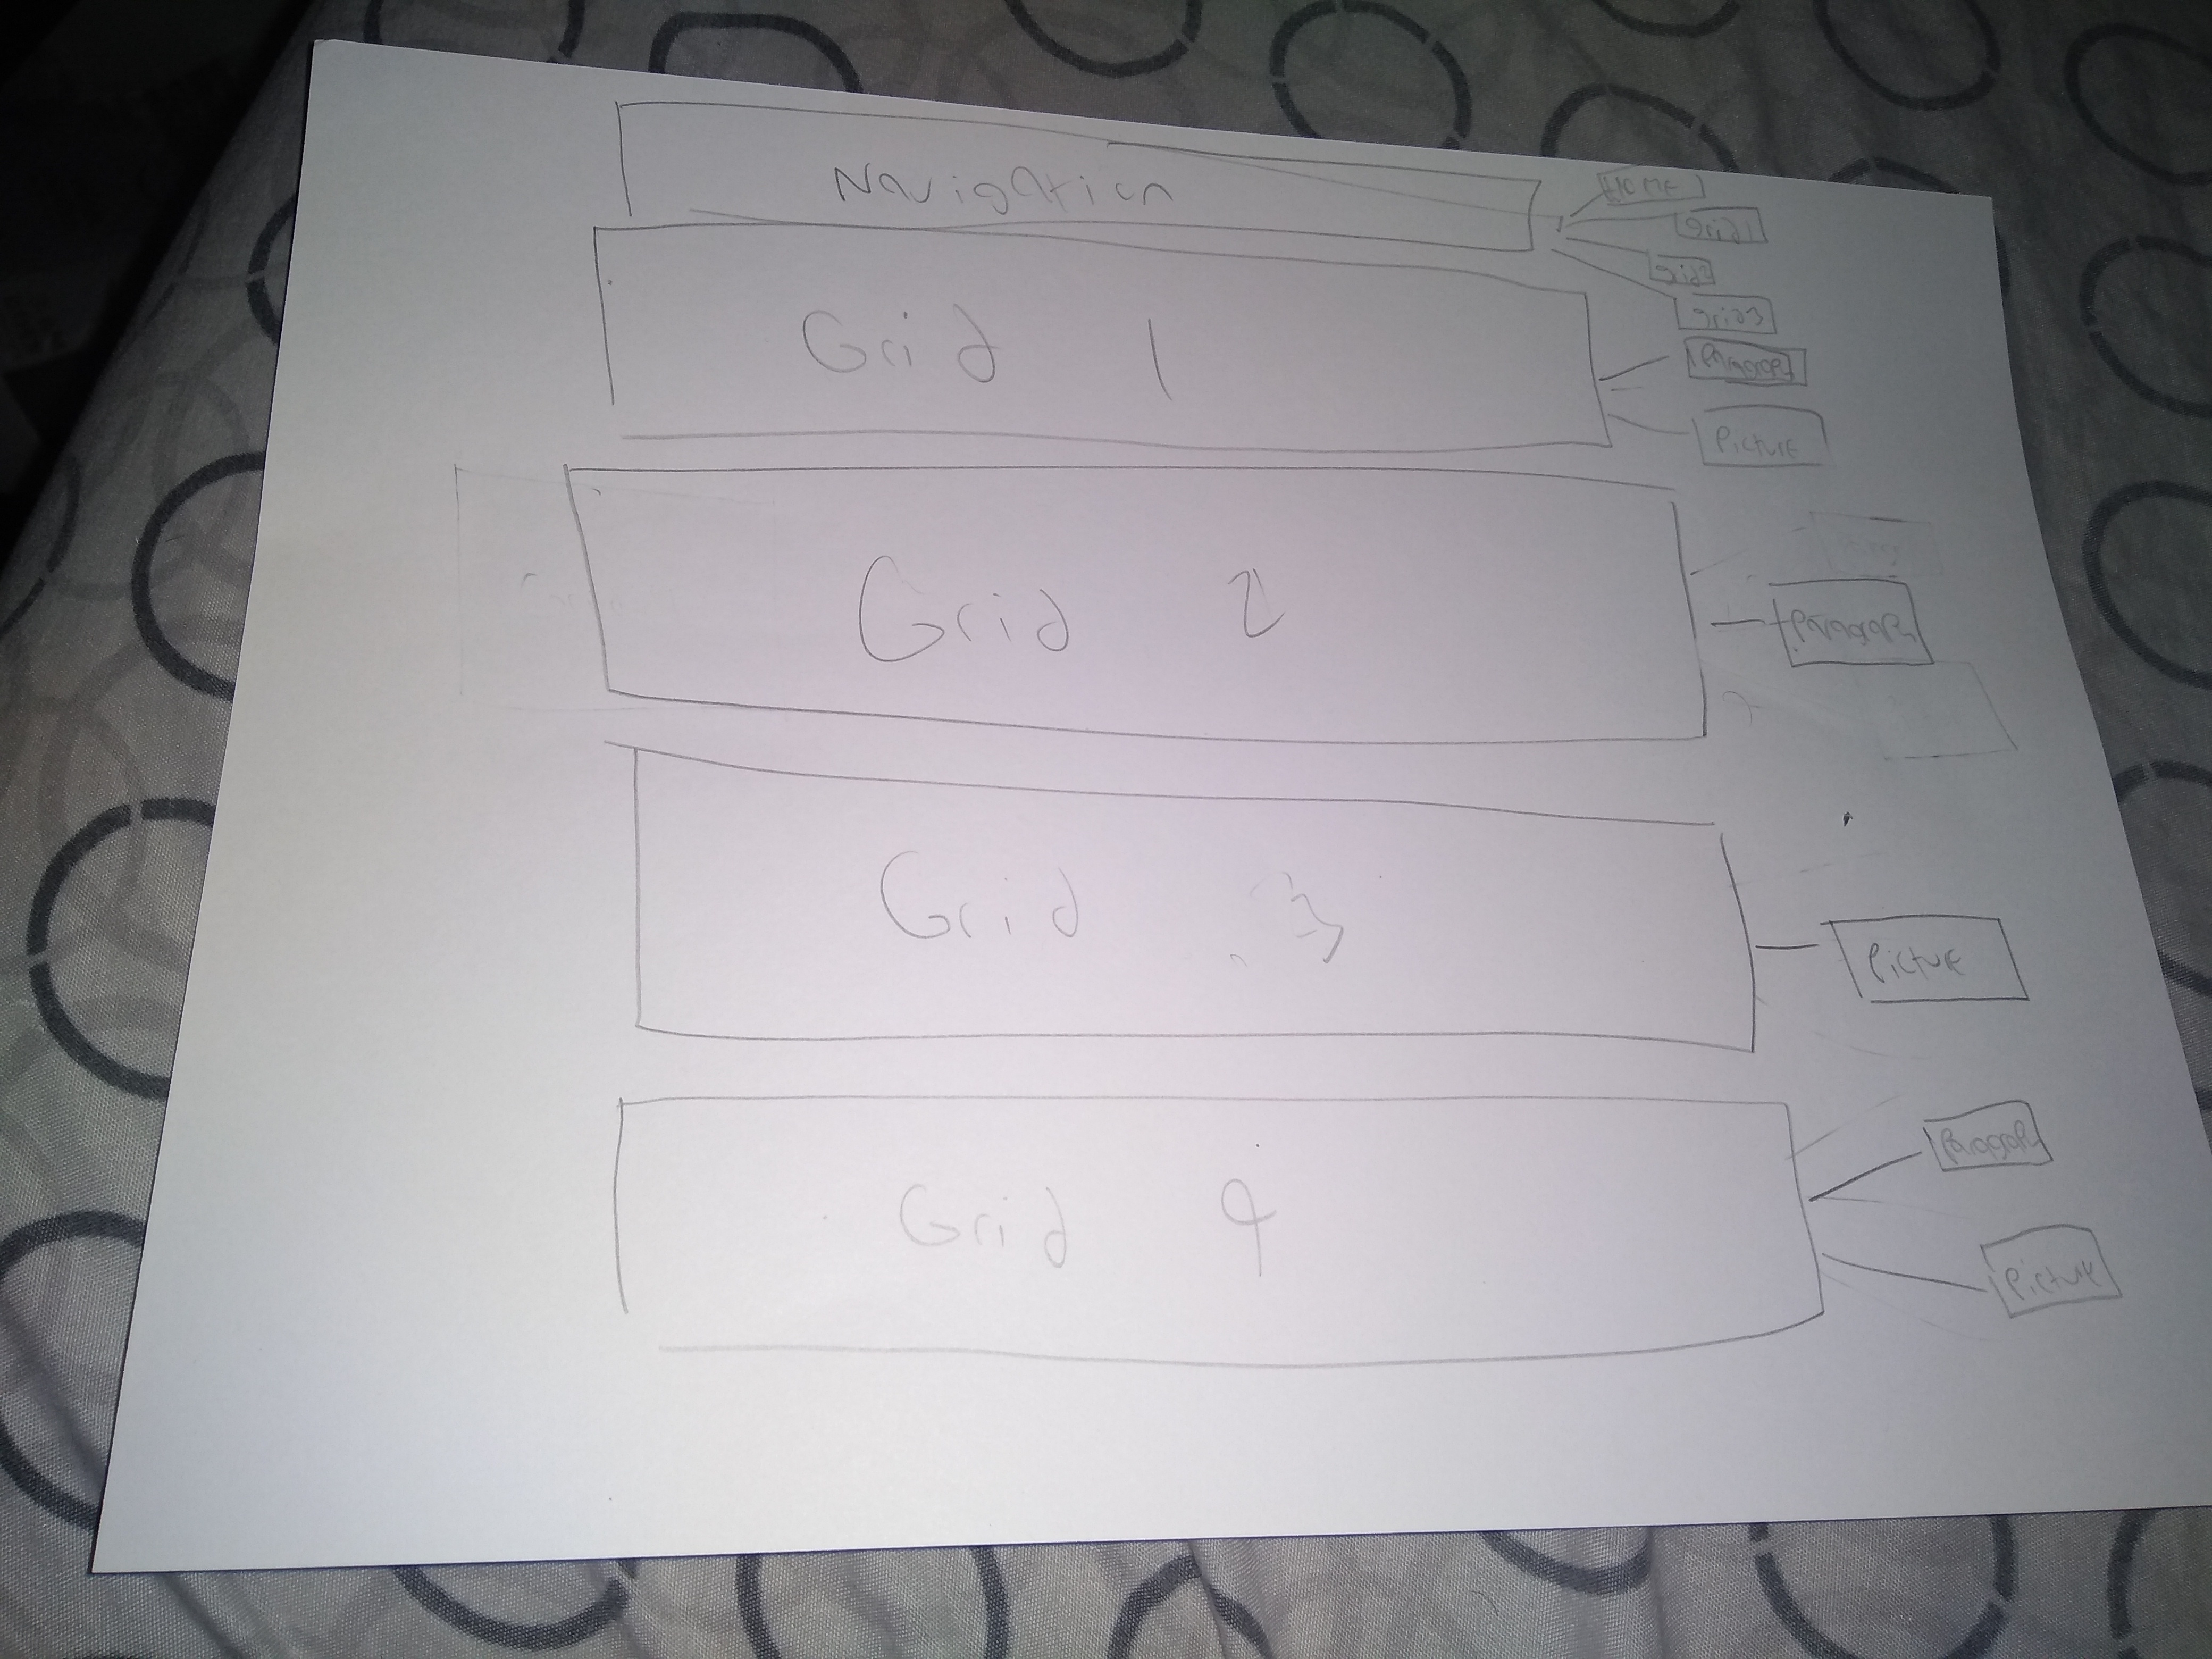 Navigation
HOME
grid1
grid2
grid3
Grid 1
Paragraph
Picture
Grid 2
Paragraph
Grid 3
Picture
Grid 4
Paragraph
Picture